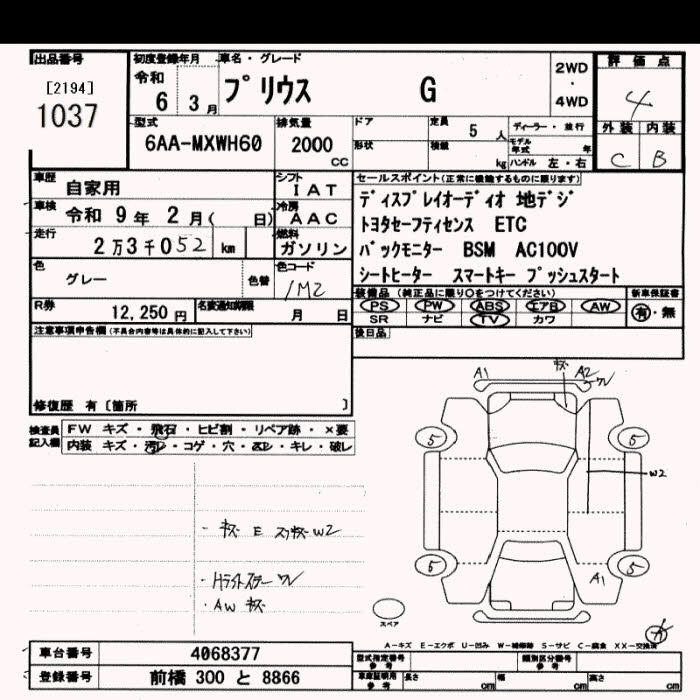 出品番号
[2194]
1037
初度登録年月 車名・グレード
令和
6 3月 プリウス G
2WD
・
4WD
評価点
4
外装 内装
C B
型式
6AA-MXWH60
排気量
2000
CC
ドア
形状
定員
5 人
積載
kg
ディーラー・並行
モデル年式 年
ハンドル 左・右
車歴
自家用
シフト
IAT
車検
令和 9年 2月( 日)
冷房
AAC
走行
2万3千052 km
燃料
ガソリン
色
グレー
色替
色コード
1M2
R券
12,250 円
名変通知期限
月 日
セールスポイント(正常に機能するものに限ります)
ディスプレイオーディオ 地デジ
トヨタセーフティセンス ETC
バックモニター BSM AC100V
シートヒーター スマートキー プッシュスタート
装備品(純正品に限り○をつけてください)
PS PW ABS エアB AW
SR ナビ TV カワ
新車保証書
有・無
後日品
注意事項申告欄(不具合内容等は具体的に記入して下さい)
修復歴 有〔箇所 〕
検査員
記入欄
FW キズ・飛石・ヒビ割・リペア跡・×要
内装 キズ・汚レ・コゲ・穴・ヌレ・キレ・破レ
・キズ E スリキズ W2
・Hライトスラー ワレ
・AW キズ
A1
キズ
A2
ワレ
5
5
W2
5
5
A1
スペア
A
A－キズ E－エクボ U－凹み W－補修跡 S－サビ C－腐食 XX－交換済
車台番号 4068377
登録番号 前橋 300 と 8866
型式指定番号
参考
類別区分番号
参考
車庫証明用
参考
長さ cm
幅 cm
高さ cm